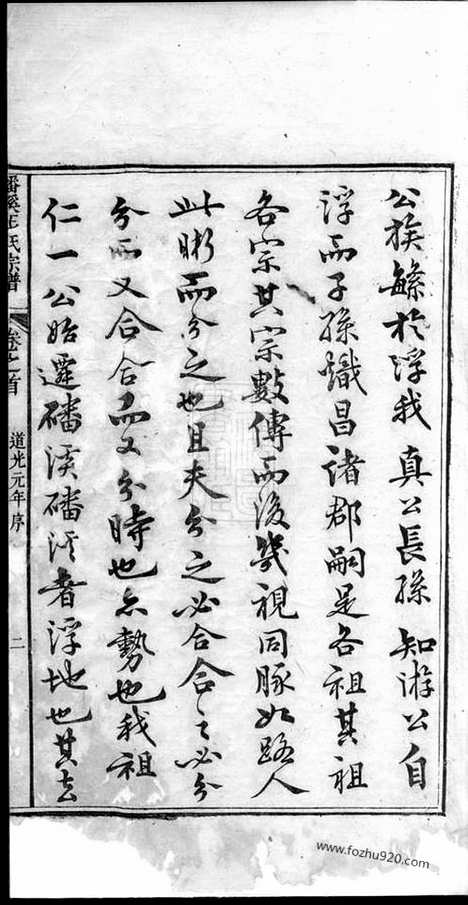 公族繇於浮我真公長孫知游公自
浮而子孫熾昌諸郡嗣是各祖其祖
各宗其宗數傳而後幾視同豚如路人
此晰而分之也且夫分之必合合之必分
分而又合合而又分時也亦勢也我祖
仁一公始遷磻溪磻溪者浮地也其去
磻溪王氏宗譜
卷之首
道光元年序
二
www.fozhu920.com